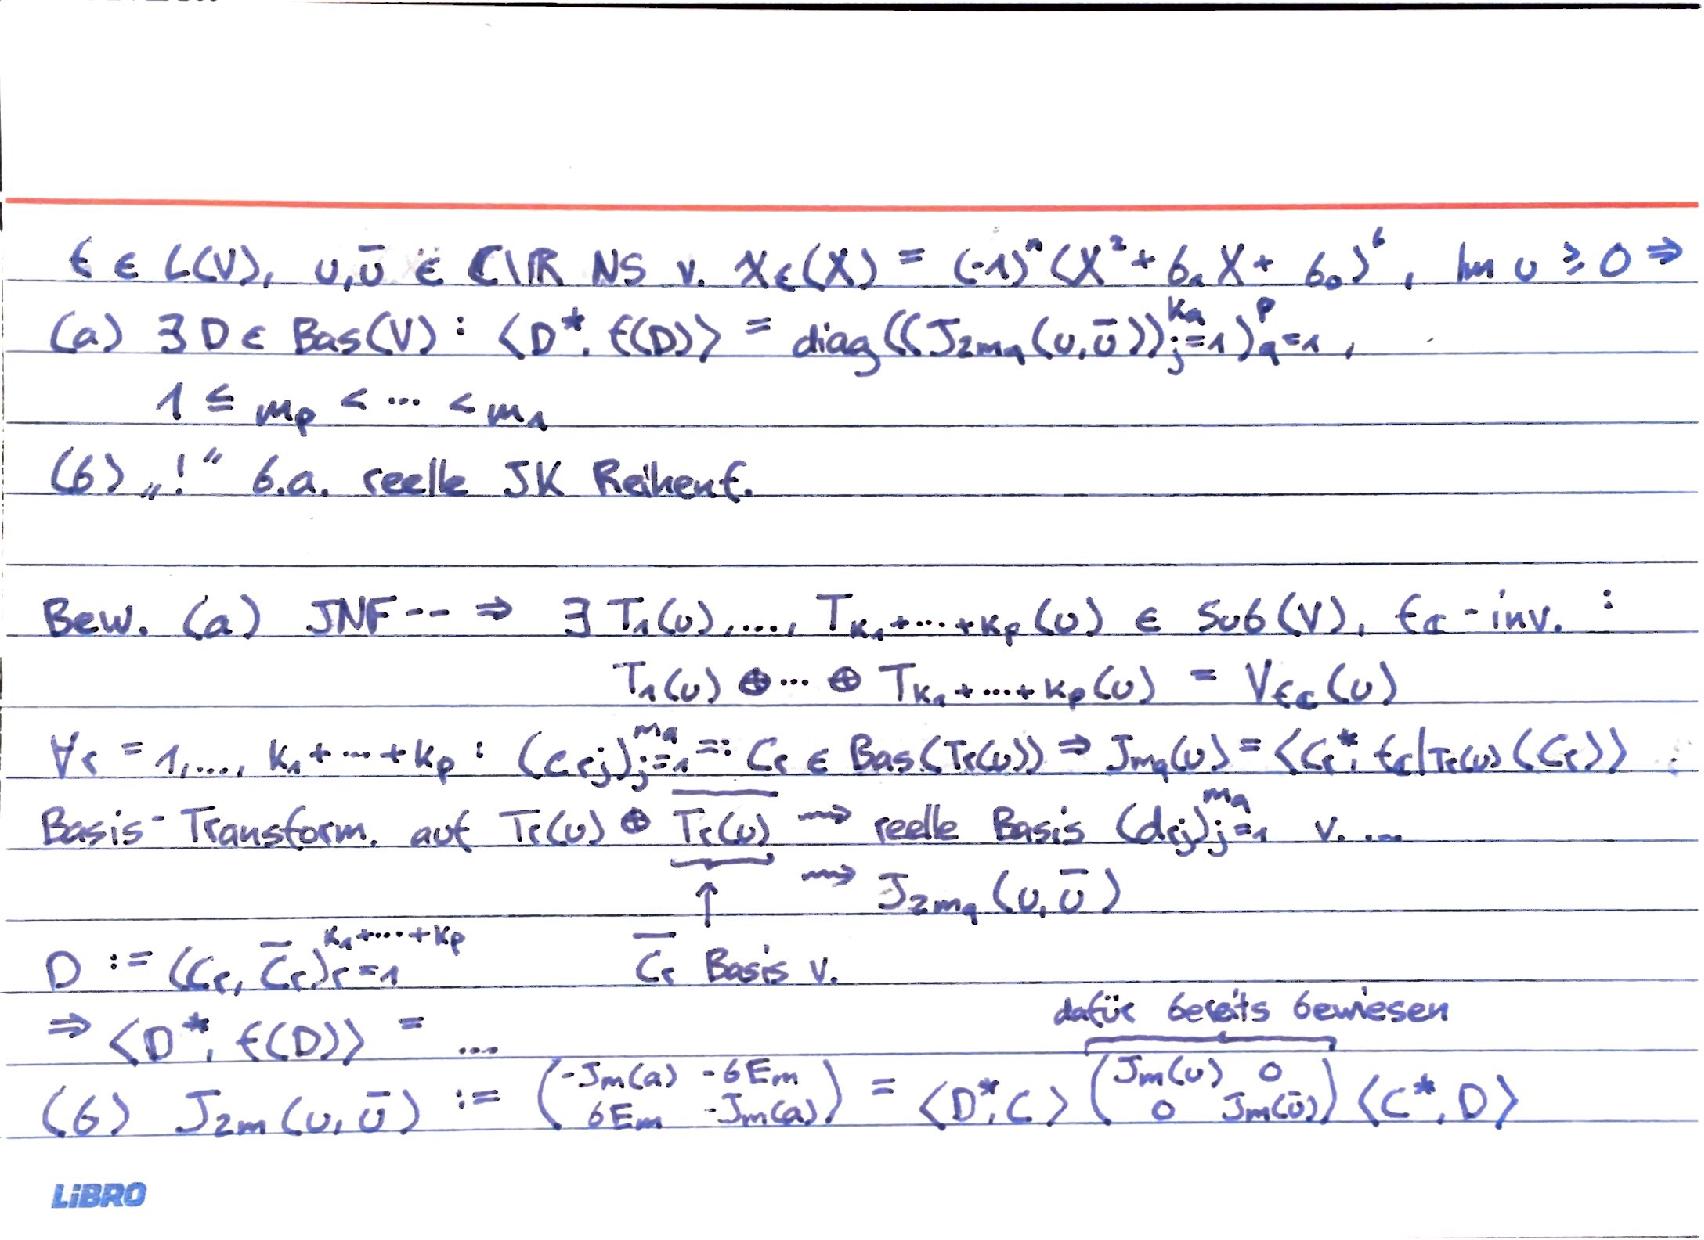 f ∈ L(V), u,ū ∈ ℂ\ℝ NS v. χ_f(X) = (-1)^n (X² + b₁X + b₀)^b, Im u ≥ 0 ⇒
(a) ∃ D ∈ Bas(V) : ⟨D*, f(D)⟩ = diag((J_{2m_q}(u,ū))_{j=1}^{k_q})_{q=1}^{p},
1 ≤ m_p < ... < m₁
(b) „!" b.a. reelle JK Reihenf.
Bew. (a) JNF -- ⇒ ∃ T₁(u),..., T_{k₁+...+k_p}(u) ∈ Sub(V), f_ℂ-inv. :
T₁(u) ⊕ ... ⊕ T_{k₁+...+k_p}(u) = V_{f_ℂ}(u)
∀r = 1,..., k₁+...+k_p : (c_{rj})_{j=1}^{m_q} =: C_r ∈ Bas(T_r(u)) ⇒ J_{m_q}(u) = ⟨C_r*, f_ℂ|T_r(u)(C_r)⟩
Basis-Transform. auf T_r(u) ⊕ \overline{T_r(u)} ⇝ reelle Basis (d_{rj})_{j=1}^{m_q} v. ...
↑ ⇝ J_{2m_q}(u,ū)
D := (C_r, \overline{C}_r)_{r=1}^{k₁+...+k_p} \overline{C_r} Basis v.
⇒ ⟨D*, f(D)⟩ = ...
dafür bereits bewiesen
(b) J_{2m}(u,ū) := (-J_m(a) -bE_m; bE_m -J_m(a)) = ⟨D*,C⟩ (J_m(u) 0; 0 J_m(ū)) ⟨C*,D⟩
LiBRO